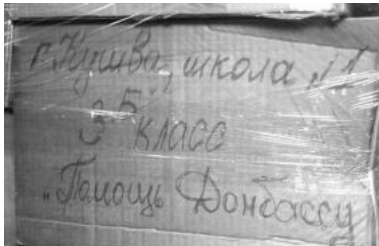 г. Кушва, школа №1
3 "Б" класс
"Помощь Донбассу